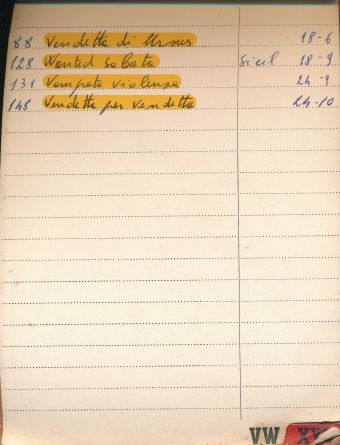 88 Vendetta di Ursus 18-6
128 Wanted Sabata Sicil 18-9
131 Vampata violenza 24-9
148 Vendetta per vendetta 24-10
VW XY